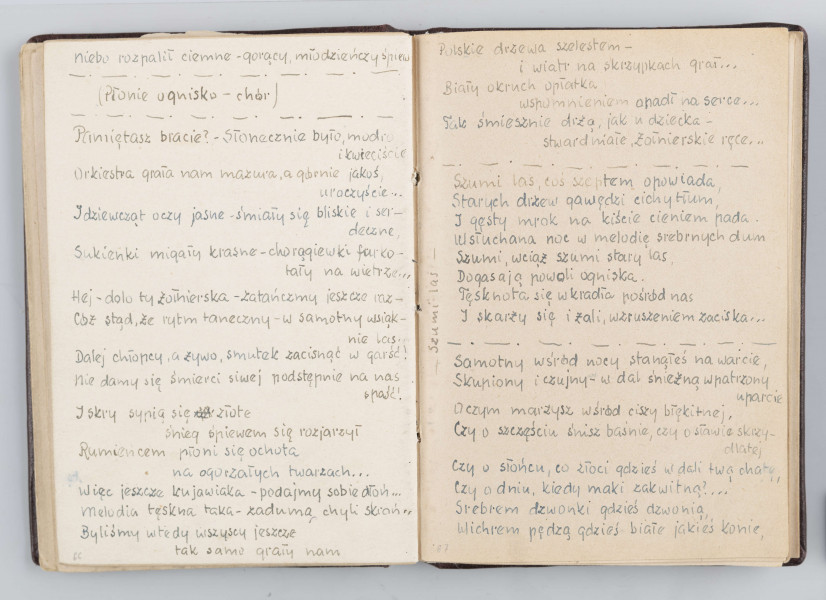 niebo rozpalił ciemne - gorący, młodzieńczy śpiew
(Płonie ognisko - chór)
Pamiętasz bracie? - Słonecznie było, modro
i kwieciście
Orkiestra grała nam mazura, a górnie jakoś,
uroczyście...
I dziewcząt oczy jasne - śmiały się bliskie i ser-
deczne,
Sukienki migały kraśne - chorągiewki furko-
tały na wietrze...
Hej - dolo ty żołnierska - zatańczmy jeszcze raz -
Cóż stąd, że rytm taneczny - w samotny wsiąk-
nie las.
Dalej chłopcy, a żywo, smutek zacisnąć w garść!
Nie damy się śmierci siwej podstępnie na nas
spaść!
Iskry sypią się złote
śnieg śpiewem się rozjarzył
Rumieńcem płoni się ochota
na ogorzałych twarzach...
Więc jeszcze kujawiaka - podajmy sobie dłoń...
Melodia tęskna taka - zadumą chyli skroń...
Byliśmy wtedy wszyscy jeszcze
tak samo grały nam
Polskie drzewa szelestem -
i wiatr na skrzypkach grał...
Biały okruch opłatka
wspomnieniem opadł na serce...
Tak śmiesznie drżą, jak u dziecka -
stwardniałe, żołnierskie ręce...
- Szumi las -
Szumi las, coś szeptem opowiada,
Starych drzew gawędzi cichy tłum,
I gęsty mrok na kiście cieniem pada.
Wsłuchana noc w melodię srebrnych dum
Szumi, wciąż szumi stary las,
Dogasają powoli ogniska.
Tęsknota się wkradła pośród nas
I skarży się i żali, wzruszeniem zaciska...
Samotny wśród nocy stanąłeś na warcie,
Skupiony i czujny - w dal śnieżną wpatrzony
uparcie
O czym marzysz wśród ciszy błękitnej,
Czy o szczęściu śnisz baśnie, czy o sławie skrzy-
dlatej
Czy o słońcu, co złoci gdzieś w dali twą chatę,
Czy o dniu, kiedy maki zakwitną?...
Srebrem dzwonki gdzieś dzwonią,
Wichrem pędzą gdzieś białe jakieś konie,